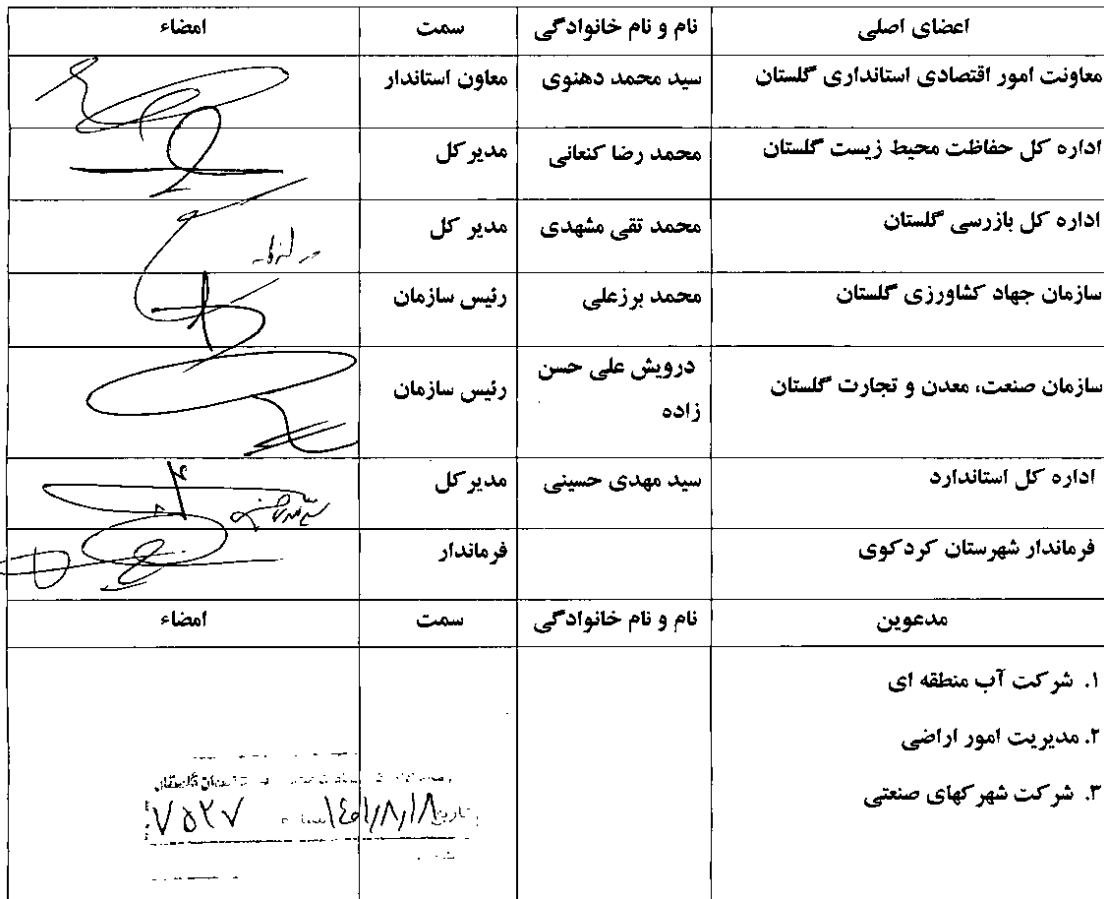 اعضای اصلی نام و نام خانوادگی سمت امضاء
معاونت امور اقتصادی استانداری گلستان سید محمد دهنوی معاون استاندار
اداره کل حفاظت محیط زیست گلستان محمد رضا کنعانی مدیر کل
اداره کل بازرسی گلستان محمد تقی مشهدی مدیر کل
سازمان جهاد کشاورزی گلستان محمد برزعلی رئیس سازمان
سازمان صنعت، معدن و تجارت گلستان درویش علی حسن رئیس سازمان
زاده
اداره کل استاندارد سید مهدی حسینی مدیر کل
فرماندار شهرستان کردکوی فرماندار
مدعوین نام و نام خانوادگی سمت امضاء
۱. شرکت آب منطقه ای
۲. مدیریت امور اراضی
۳. شرکت شهرکهای صنعتی
تاریخ ۱۴۰۱/۸/۱۸ ۷۵۲۷